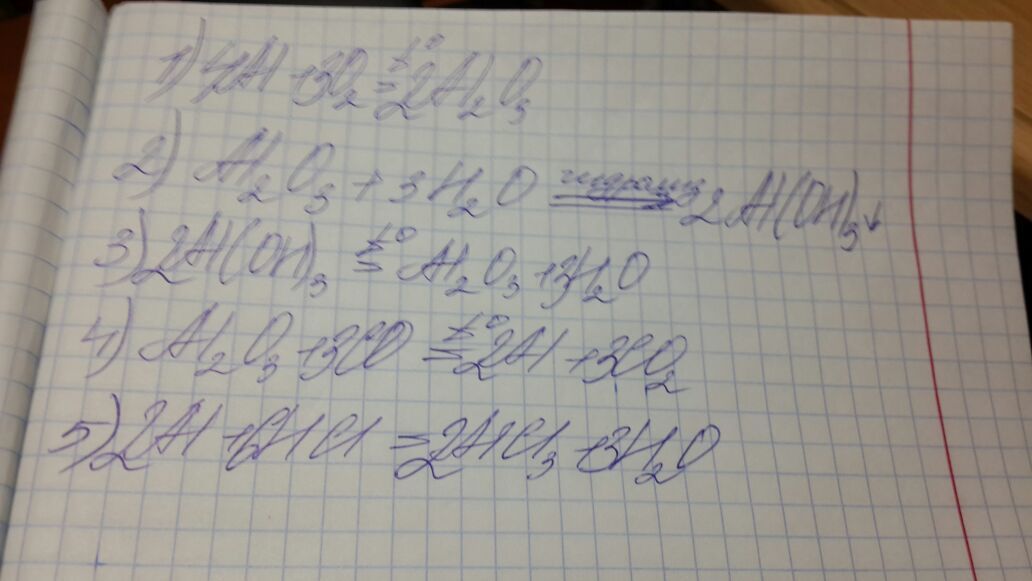 1) 4Al + 3O₂ =t° 2Al₂O₃
2) Al₂O₃ + 3H₂O гидролиз⟹ 2Al(OH)₃↓
3) 2Al(OH)₃ =t° Al₂O₃ + 3H₂O
4) Al₂O₃ + 3CO =t° 2Al + 3CO₂
5) 2Al + 6HCl = 2AlCl₃ + 3H₂O